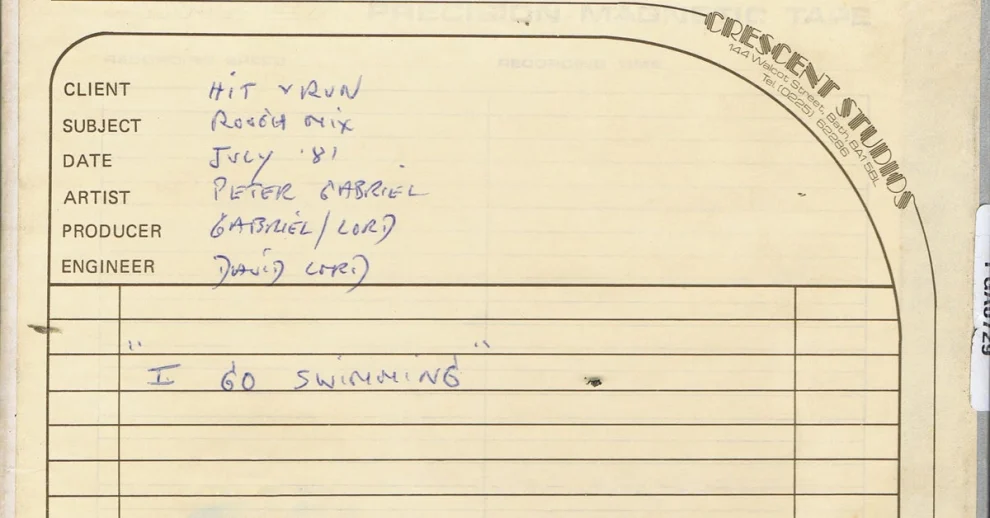 CRESCENT STUDIOS
144 Walcot Street, Bath, BA1 5BL
Tel. (0225) 62286
CLIENT HIT & RUN
SUBJECT ROUGH MIX
DATE JULY '81
ARTIST PETER GABRIEL
PRODUCER GABRIEL/LORD
ENGINEER DAVID LORD
"I GO SWIMMING"